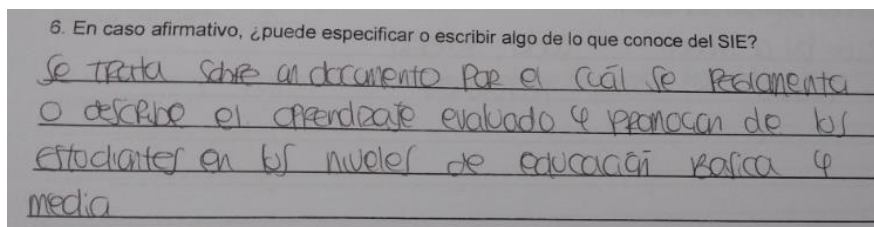 6. En caso afirmativo, ¿puede especificar o escribir algo de lo que conoce del SIE?
Se trata sobre un documento por el cuál se reglamenta
o describe el aprendizaje evaluado y promocion de los
estudiantes en los niveles de educación Basica y
media